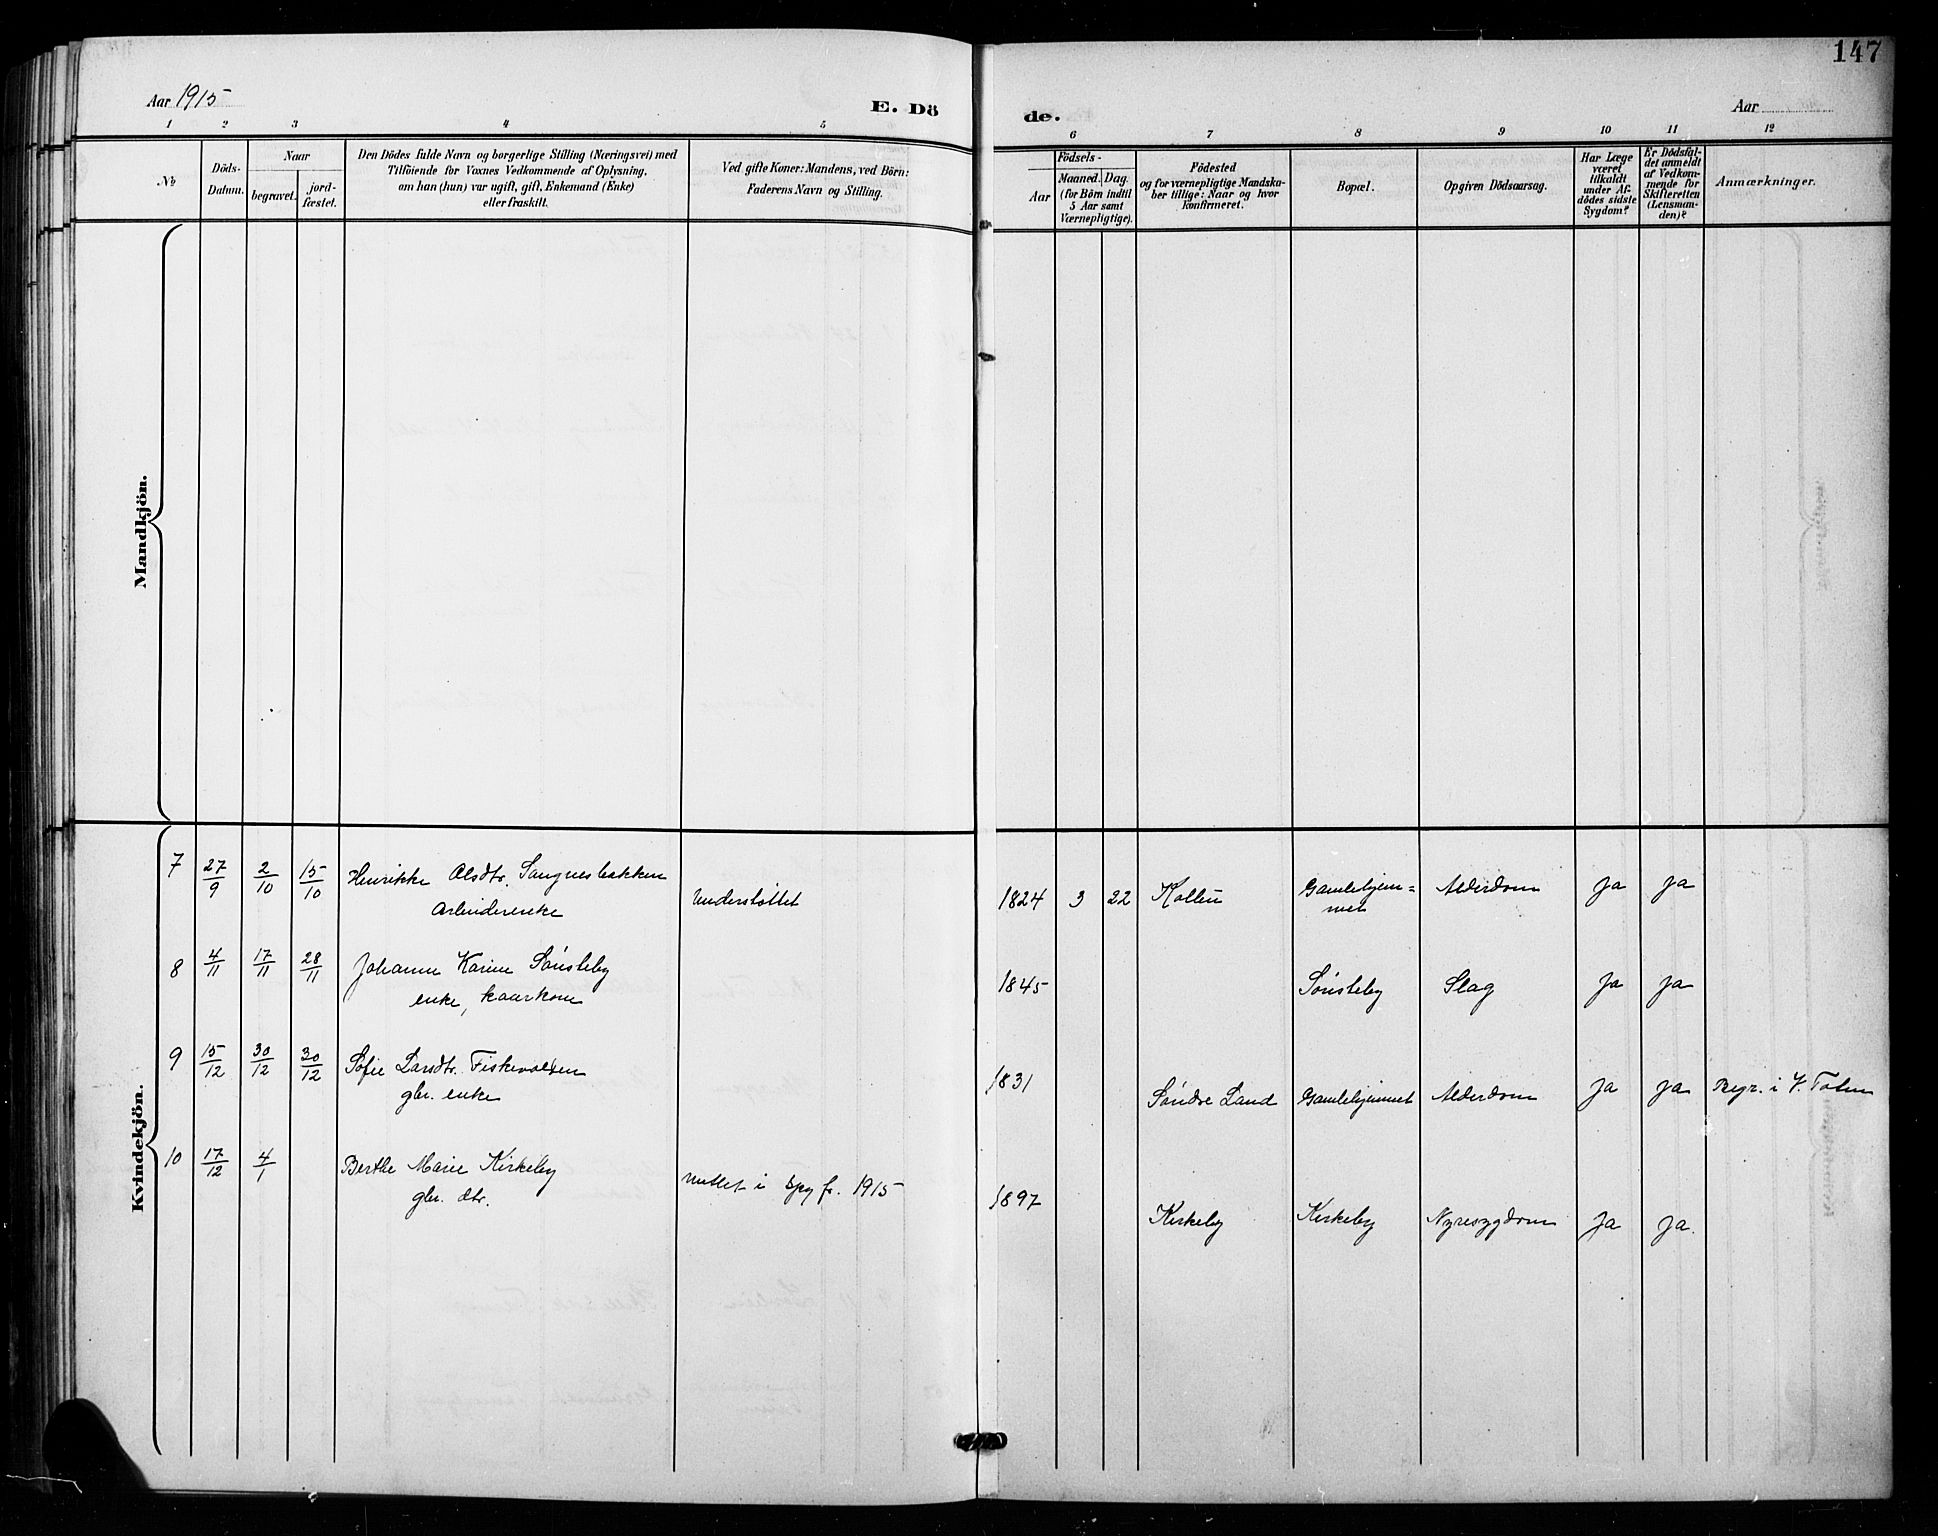 147
Aar 1915
E. Dö
de.
Aar
1 2 3 4 5
6 7 8 9 10 11 12
№
Döds-
Datum.
Naar
begravet.
jord-
fæstet.
Den Dödes fulde Navn og borgerlige Stilling (Næringsvei) med
Tilföiende for Voxnes Vedkommende af Oplysning,
om han (hun) var ugift, gift, Enkemand (Enke)
eller fraskilt.
Ved gifte Koner: Mandens, ved Börn:
Faderens Navn og Stilling.
Födsels-
Aar
Maaned.
Dag.
(for Börn indtil
5 Aar samt
Værnepligtige).
Födested
og for værnepligtige Mandska-
ber tillige: Naar og hvor
konfirmeret.
Bopæl.
Opgiven Dödsaarsag.
Har Læge
været
tilkaldt
under Af-
dödes sidste
Sygdom?
Er Dödsfal-
det anmeldt
af Vedkom-
mende for
Skifteretten
(Lensman-
den)?
Anmærkninger.
Mandkjön.
Kvindekjön.
7 27/9 2/10 15/10 Henrikke Olsdtr. Sangnesbakken
arbeiderenke
understöttet 1824 3 22 Gamlehjem=
met
Alderdom Ja Ja
8 4/11 17/11 28/11 Johanne Karine Sönsteby
enke, kaarkone
1845 Sönsteby Slag Ja Ja
9 15/12 30/12 30/12 Sofie Larsdtr. Fiskevolden
gbr. enke
1831 Söndre Land Gamlehjemmet Alderdom Ja Ja Begr. i V. Toten
10 17/12 4/1 Berthe Marie Kirkeby
gbr. dtr.
i spg fr. 1915
1897 Kirkeby Kirkeby Nyresygdom Ja Ja.